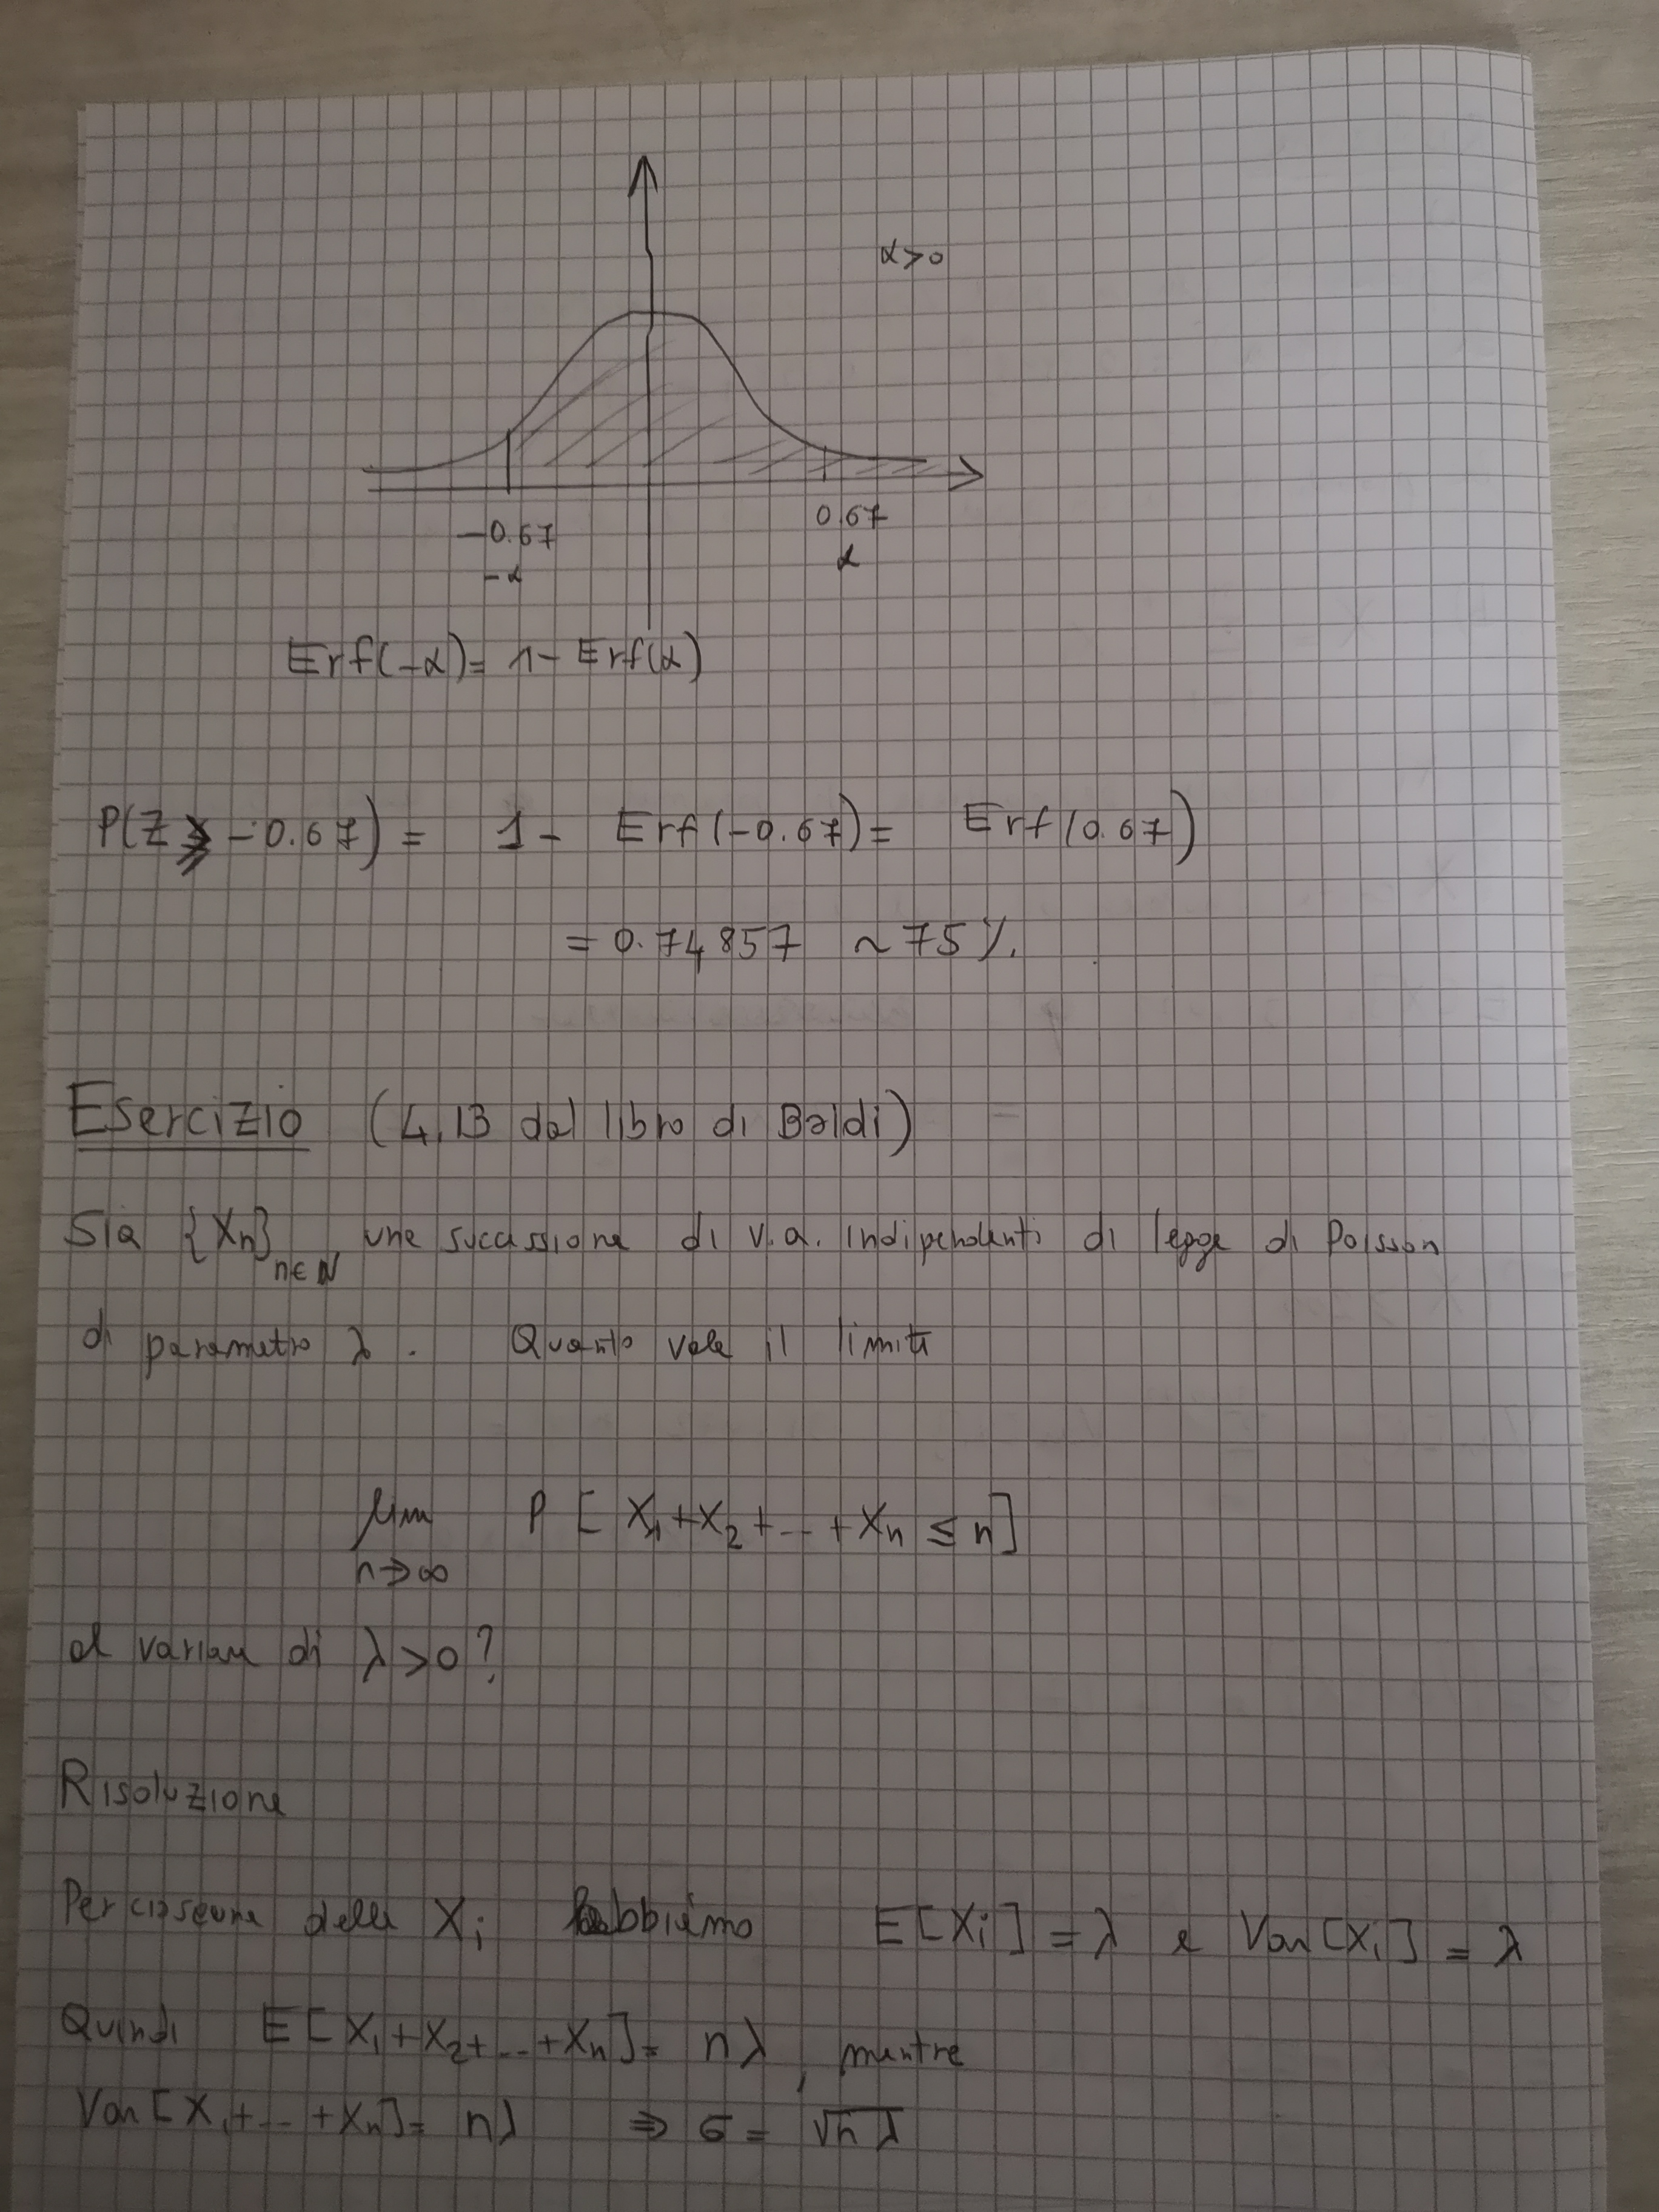 α>0
-0.67 0.67
-α α
Erf(-α)= 1- Erf(α)
P(Z ≥ -0.67) = 1- Erf(-0.67)= Erf(0.67)
= 0.74857 ~75%.
Esercizio (4.13 dal libro di Baldi)
Sia {Xn}n∈N una successione di v.a. indipendenti di legge di Poisson
di parametro λ. Quanto vale il limite
lim P[X1+X2+...+Xn ≤ n]
n→∞
al variare di λ>0?
Risoluzione
Per ciascuna delle Xi abbiamo E[Xi]=λ e Var[Xi]=λ
Quindi E[X1+X2+...+Xn]= nλ, mentre
Var[X1+...+Xn]= nλ ⇒ σ= √nλ